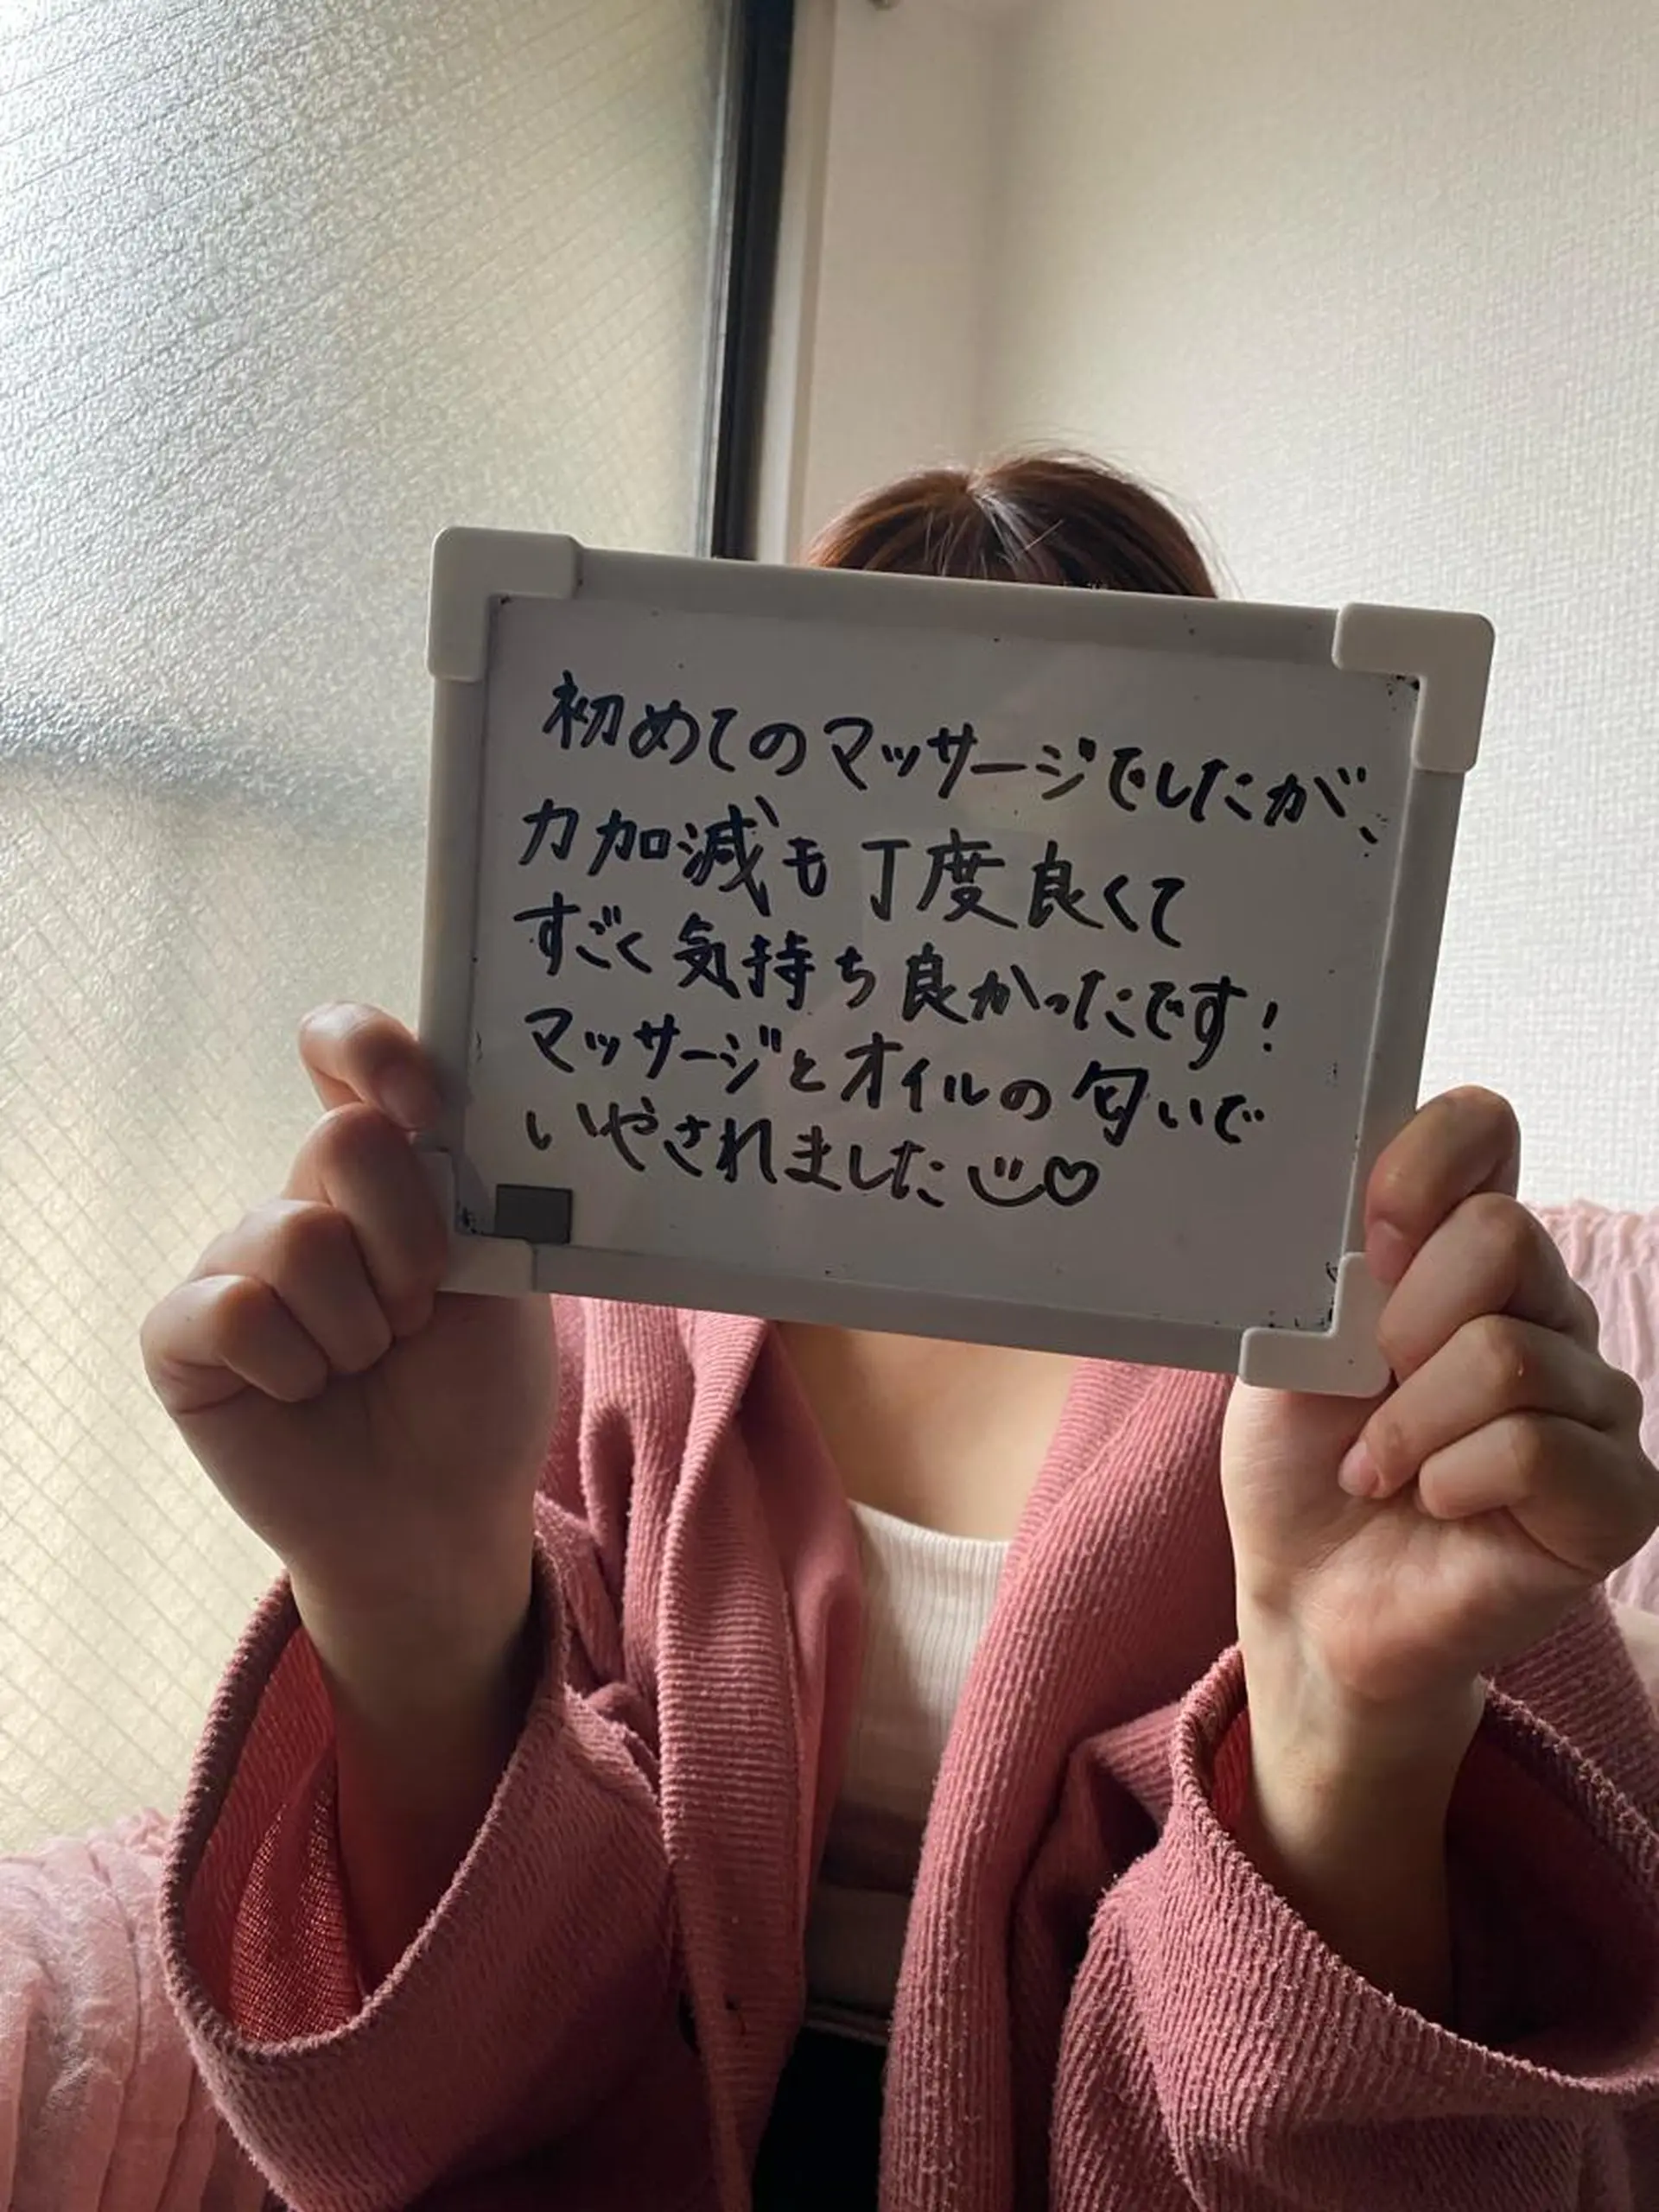 初めてのマッサージでしたが、
力加減も丁度良くて
すごく気持ち良かったです！
マッサージとオイルの匂いで
いやされました